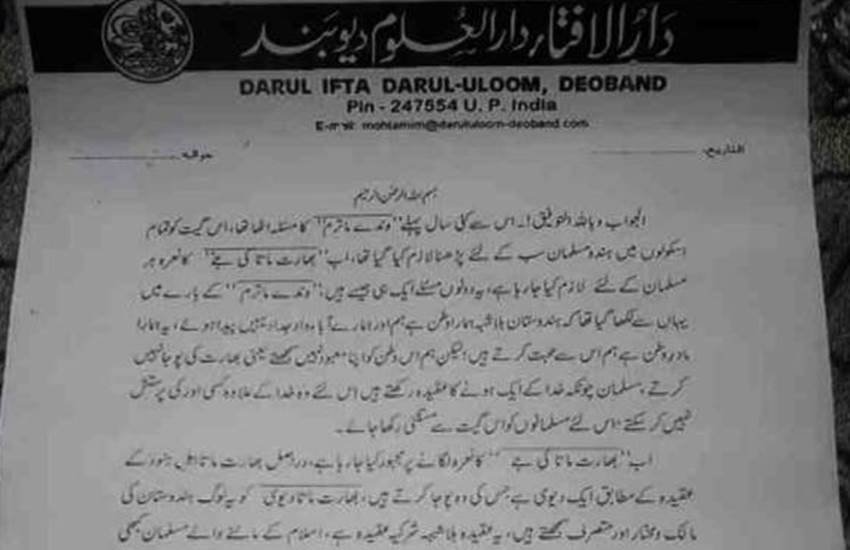 دارُالافتاء دارالعُلوم دیوبَند
DARUL IFTA DARUL-ULOOM, DEOBAND
Pin - 247554 U. P. India
E-mail: mohtamim@darululoom-deoband.com
التاریخ: حوالہ
بسم اللہ الرحمٰن الرحیم
الجواب وباللہ التوفیق!۔ اس سے کئی سال پہلے "وندے ماترم" کا مسئلہ اٹھا تھا، اس گیت کو تمام
اسکولوں میں ہندو مسلمان سب کے لئے پڑھنا لازم کیا گیا تھا، اب "بھارت ماتا کی جے" کا نعرہ ہر
مسلمان کے لئے لازم کیا جارہا ہے، یہ دونوں مسئلے ایک ہی جیسے ہیں، "وندے ماترم" کے بارے میں
یہاں سے لکھا گیا تھا کہ ہندوستان بلاشبہ ہمارا وطن ہے ہم اور ہمارے آباء واجداد یہیں پیدا ہوئے، یہ ہمارا
مادر وطن ہے ہم اس سے محبت کرتے ہیں؛ لیکن ہم اس وطن کو اپنا معبود نہیں سمجھتے یعنی بھارت کی پوجا نہیں
کرتے، مسلمان چونکہ خدا کے ایک ہونے کا عقیدہ رکھتے ہیں اس لئے وہ خدا کے علاوہ کسی اور کی پرستش
نہیں کرسکتے؛ اس لئے مسلمانوں کو اس گیت سے مستثنی رکھا جائے۔
اب "بھارت ماتا کی جے" کا نعرہ لگانے پر مجبور کیا جارہا ہے، دراصل بھارت ماتا اہل ہنود کے
عقیدہ کے مطابق ایک دیوی ہے جس کی وہ پوجا کرتے ہیں، بھارت ماتا دیوی کو یہ لوگ ہندوستان کی
مالک ومختار اور متصرف سمجھتے ہیں، یہ عقیدہ بلاشبہ شرکیہ عقیدہ ہے، اسلام کے ماننے والے مسلمان کبھی